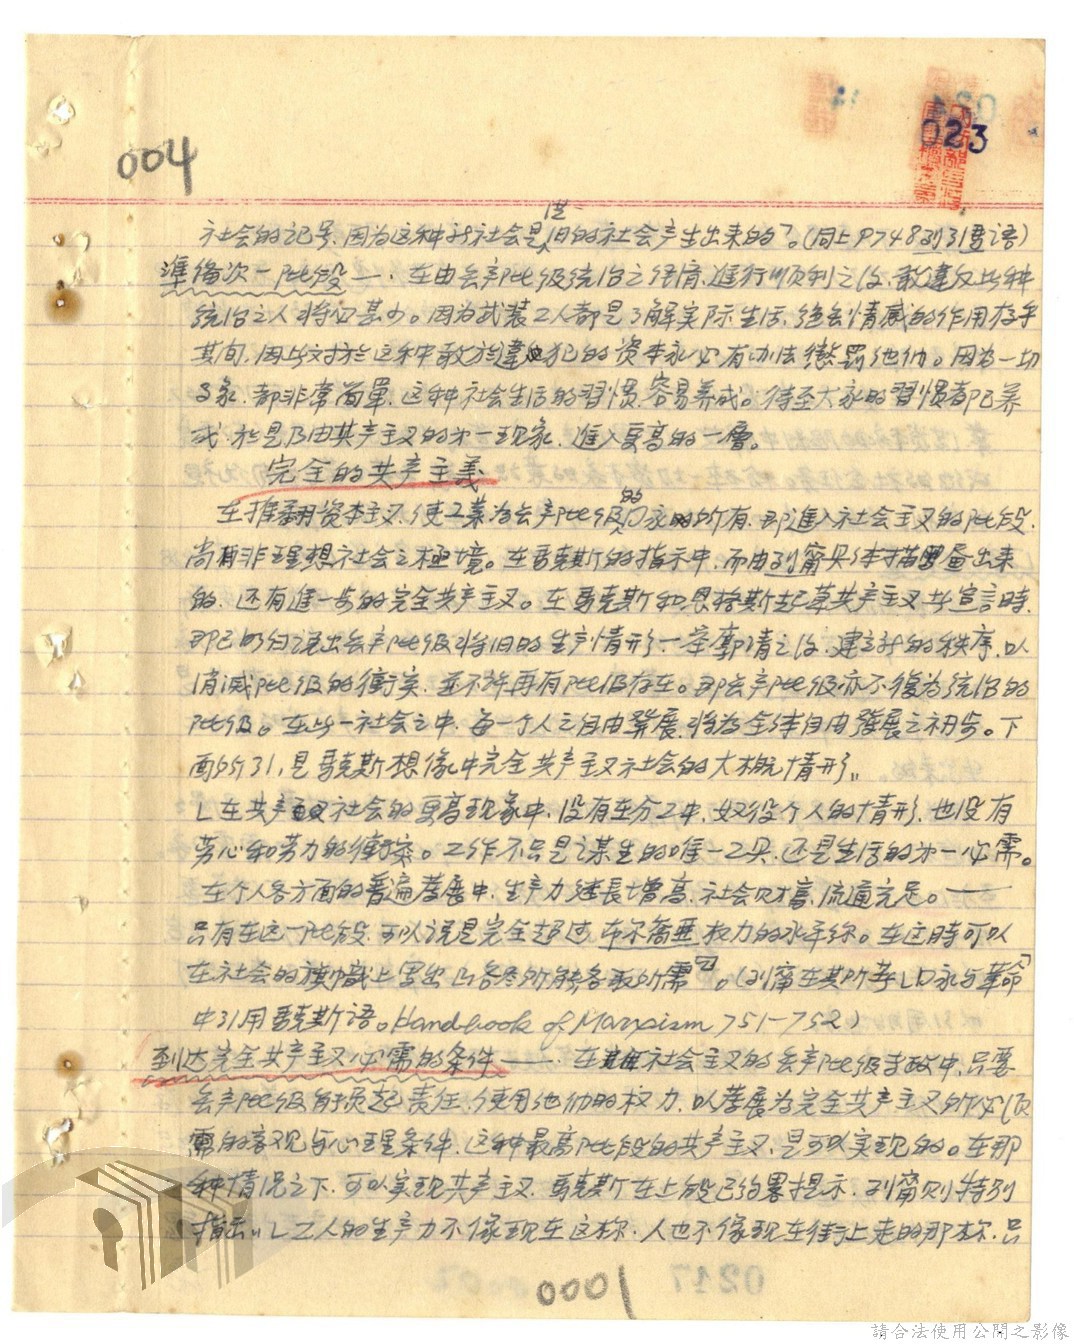 023
004
社会的记号.因为这种新社会是从旧的社会产生出来的"。(同上P748列引马语)
準備次一阶段——.在由无产阶级统治之经济,進行顺利之後,敢違反此种
统治之人将必甚少。因为武装工人都是了解实际生活,绝无情感的作用存乎
其间,因此对於这种敢於違犯的资本家必有办法惩罚他们。因为一切
都非常简單.这种社会生活的習慣.容易养成。待至大家的習慣都已养
成.於是乃由共产主义的第一现象.進入更高的一層。
完全的共产主義
在推翻资本主义.使工業为无产阶级的国家所有.即進入社会主义的阶段,
尚有非理想社会之極境。在馬克斯的指示中,而由列甯具体描画出来
的.还有進一步的完全共产主义。在馬克斯和恩格斯起草共产主义宣言時,
即已明白说出无产阶级将旧的生产情形一举廓清之後.建立新的秩序,以
消滅阶级的衝突.並不许再有阶级存在。即无产阶级亦不復为统治的
阶级。在此一社会之中.每一个人之自由發展,将为全体自由發展之初步。下
面所引,是馬克斯想像中完全共产主义社会的大概情形,,
「在共产主义社会的更高现象中.没有在分工中,奴役个人的情形,也没有
劳心和劳力的衝突。工作不只是谋生的唯一工具.还是生活的第一必需。
在个人各方面的普遍發展中.生产力延長增高,社会财富,流通充足。——
只有在这一阶段.可以说是完全超过布尔喬亜权力的水平線。在这時可以
在社会的旗幟上寫出「各尽所能各取所需」。(列甯在其所著「国家与革命」
中引用馬克斯語。Handbook of Marxism 751-752)
到达完全共产主义必需的条件——.在社会主义的无产阶级專政中,只要
无产阶级能负起责任.使用他们的权力.以發展为完全共产主义所必须
需的客观与心理条件.这种最高阶段的共产主义.是可以实现的。在那
种情况之下.可以实现共产主义.馬克斯在上段已约畧提示.列甯则特别
指出,,「工人的生产力不像现在这样.人也不像现在街上走的那样.只
0001
0217
請合法使用公開之影像